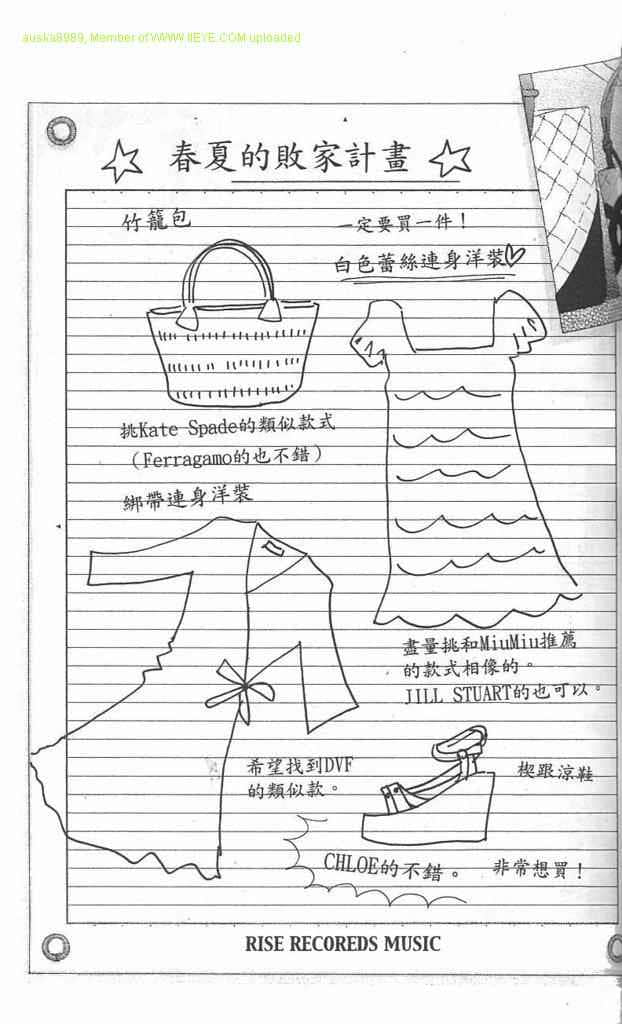 auska8989, Member of WWW.IIEYE.COM uploaded
春夏的敗家計畫
竹籠包
一定要買一件！
白色蕾絲連身洋裝
挑Kate Spade的類似款式
（Ferragamo的也不錯）
綁帶連身洋裝
盡量挑和MiuMiu推薦
的款式相像的。
JILL STUART的也可以。
希望找到DVF
的類似款。
楔跟涼鞋
CHLOE的不錯。
非常想買！
RISE RECOREDS MUSIC